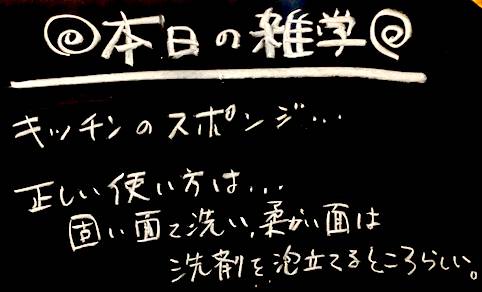 本日の雑学
キッチンのスポンジ...
正しい使い方は...
固い面で洗い、柔かい面は
洗剤を泡立てるところらしい。